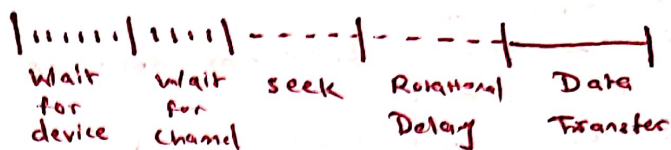 Wait for device
Wait for Channel
seek
Rotational Delay
Data Transfer